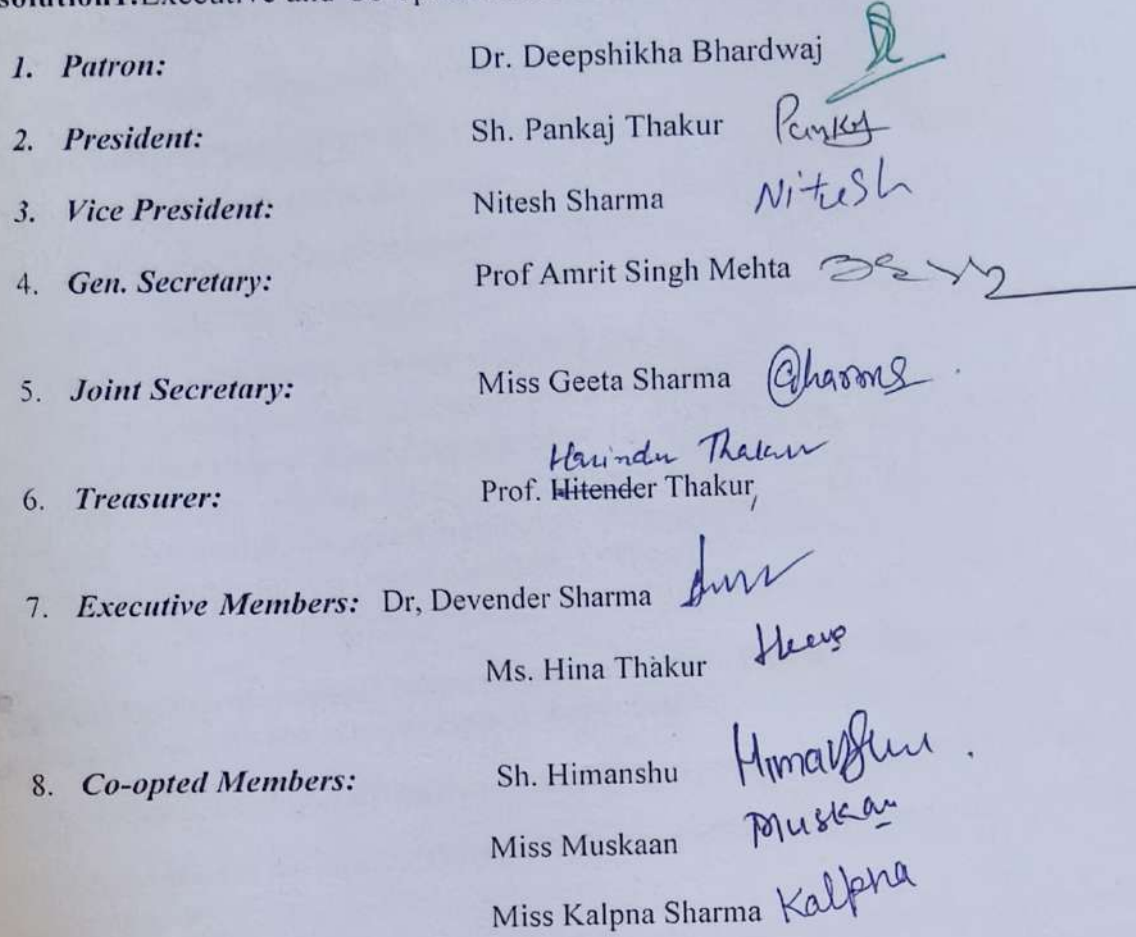 1. Patron: Dr. Deepshikha Bhardwaj
2. President: Sh. Pankaj Thakur Pankaj
3. Vice President: Nitesh Sharma Nitesh
4. Gen. Secretary: Prof Amrit Singh Mehta
5. Joint Secretary: Miss Geeta Sharma
Thakur
6. Treasurer: Prof. Hitender Thakur,
7. Executive Members: Dr, Devender Sharma
Ms. Hina Thakur
8. Co-opted Members: Sh. Himanshu Himanshu
Miss Muskaan Muskan
Miss Kalpna Sharma Kalpna